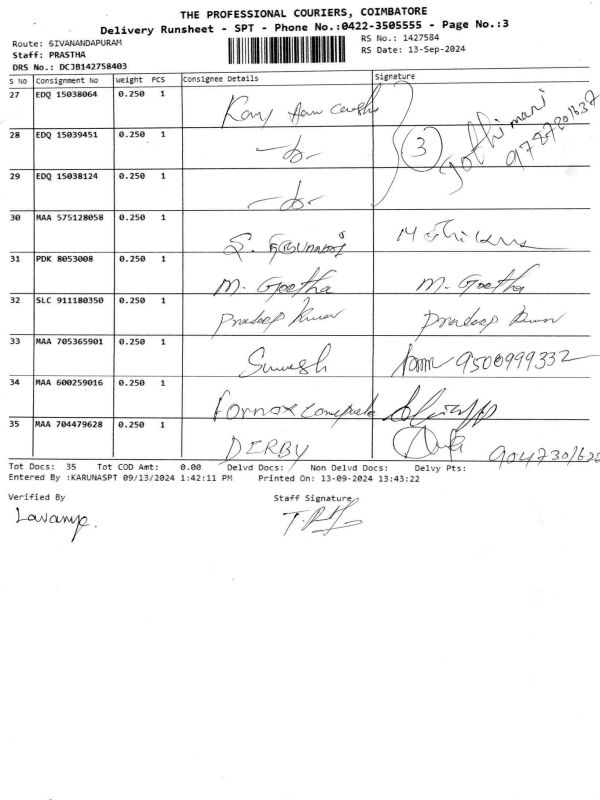 THE PROFESSIONAL COURIERS, COIMBATORE
Delivery Runsheet - SPT - Phone No.:0422-3505555 - Page No.:3
Route: SIVANANDAPURAM
RS No.: 1427584
Staff: PRASTHA
RS Date: 13-Sep-2024
DRS No.: DCJB142758403
S No Consignment No Weight PCS Consignee Details Signature
27 EDQ 15038064 0.250 1
28 EDQ 15039451 0.250 1 3
29 EDQ 15038124 0.250 1
30 MAA 575128058 0.250 1
31 PDK 8053008 0.250 1 M. Geetha M. Geetha
32 SLC 911180350 0.250 1 Pradeep Kumar Pradeep Kumar
33 MAA 705365901 0.250 1 Suresh 9500999332
34 MAA 600259016 0.250 1 Fornax
35 MAA 704479628 0.250 1 DERBY
Tot Docs: 35 Tot COD Amt: 0.00 Delvd Docs: Non Delvd Docs: Delvy Pts:
Entered By :KARUNASPT 09/13/2024 1:42:11 PM Printed On: 13-09-2024 13:43:22
Verified By Staff Signature